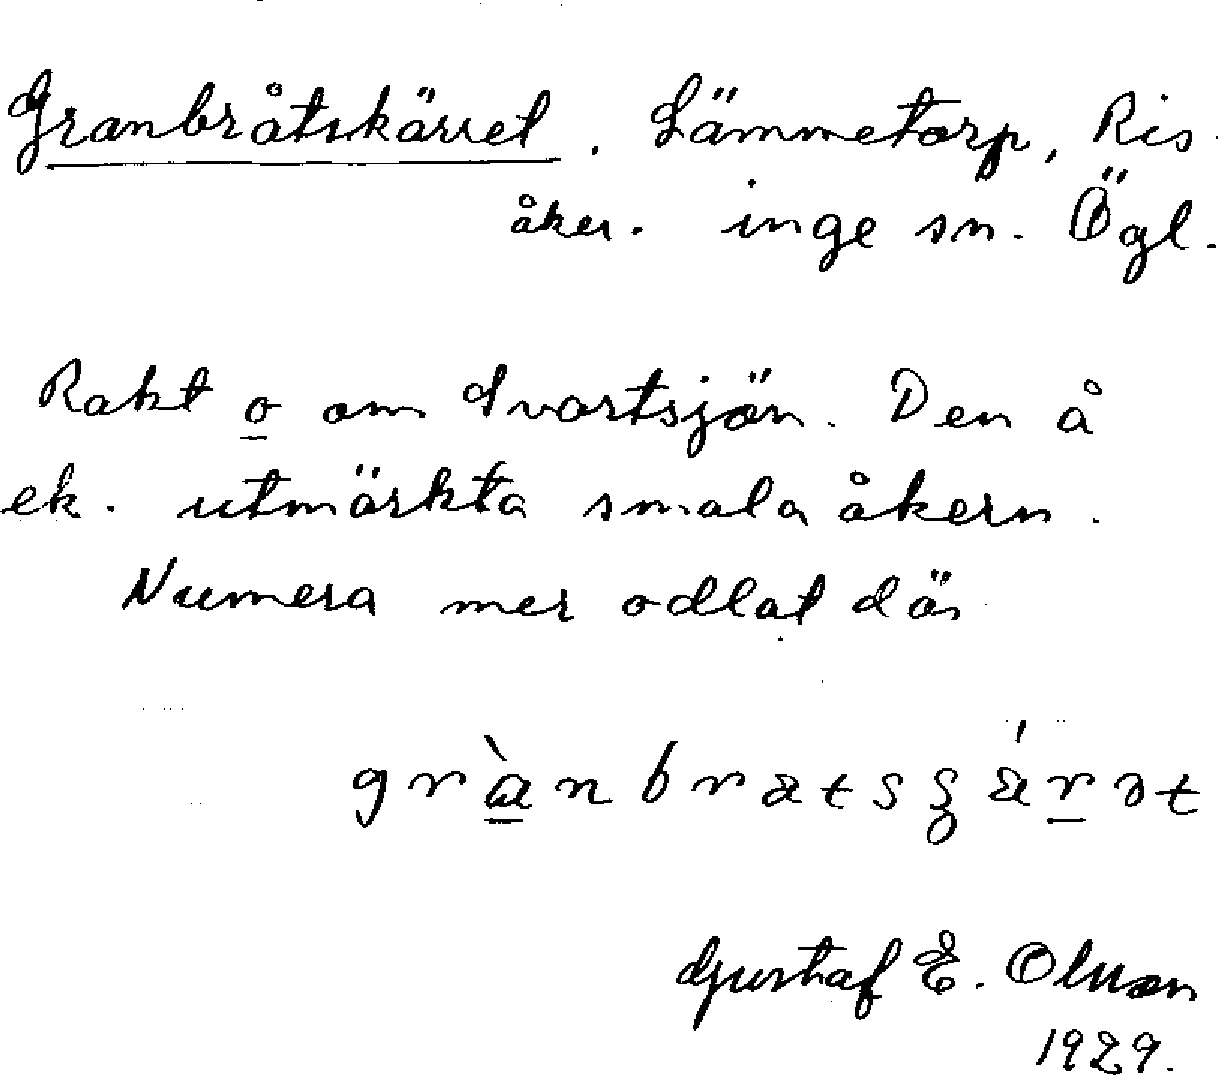 Granbråtskärret. Lämmetorp, Ris-
åker. inge sn. Ögl.
Rakt o om Svartsjön. Den å
ek. utmärkta smala åkern.
Numera mer odlat där
Gustaf E. Olsson
1929.